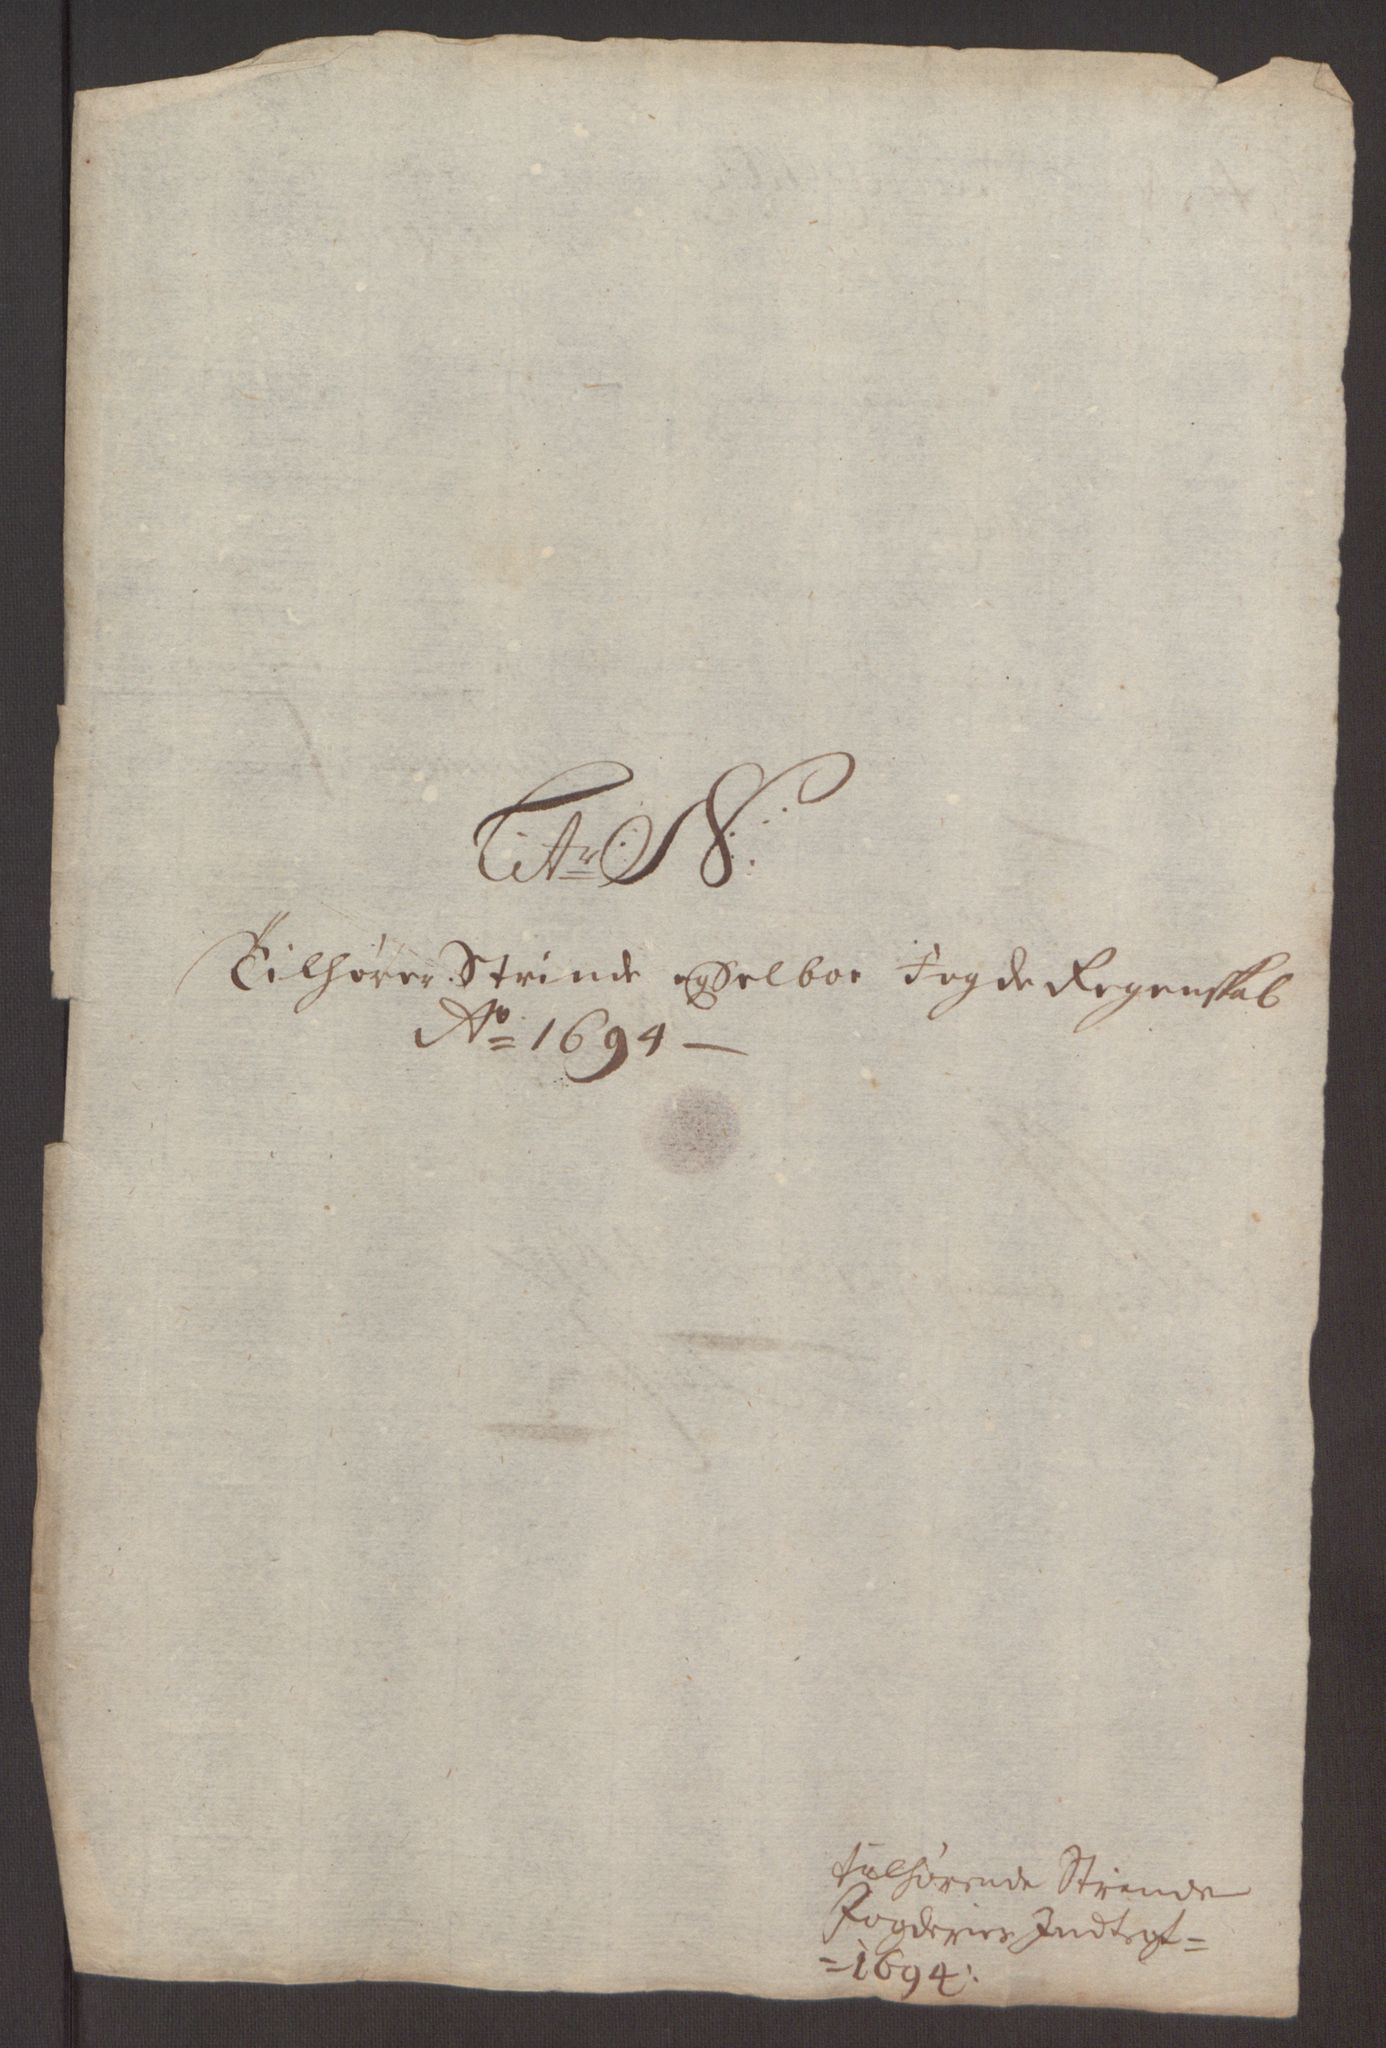 Litr: N:
Tilhører Strinde og Selboe Fogde Regenskab
Ao 1694 —
tilhørende Strinde
Fogderies Indtegt=
=1694: